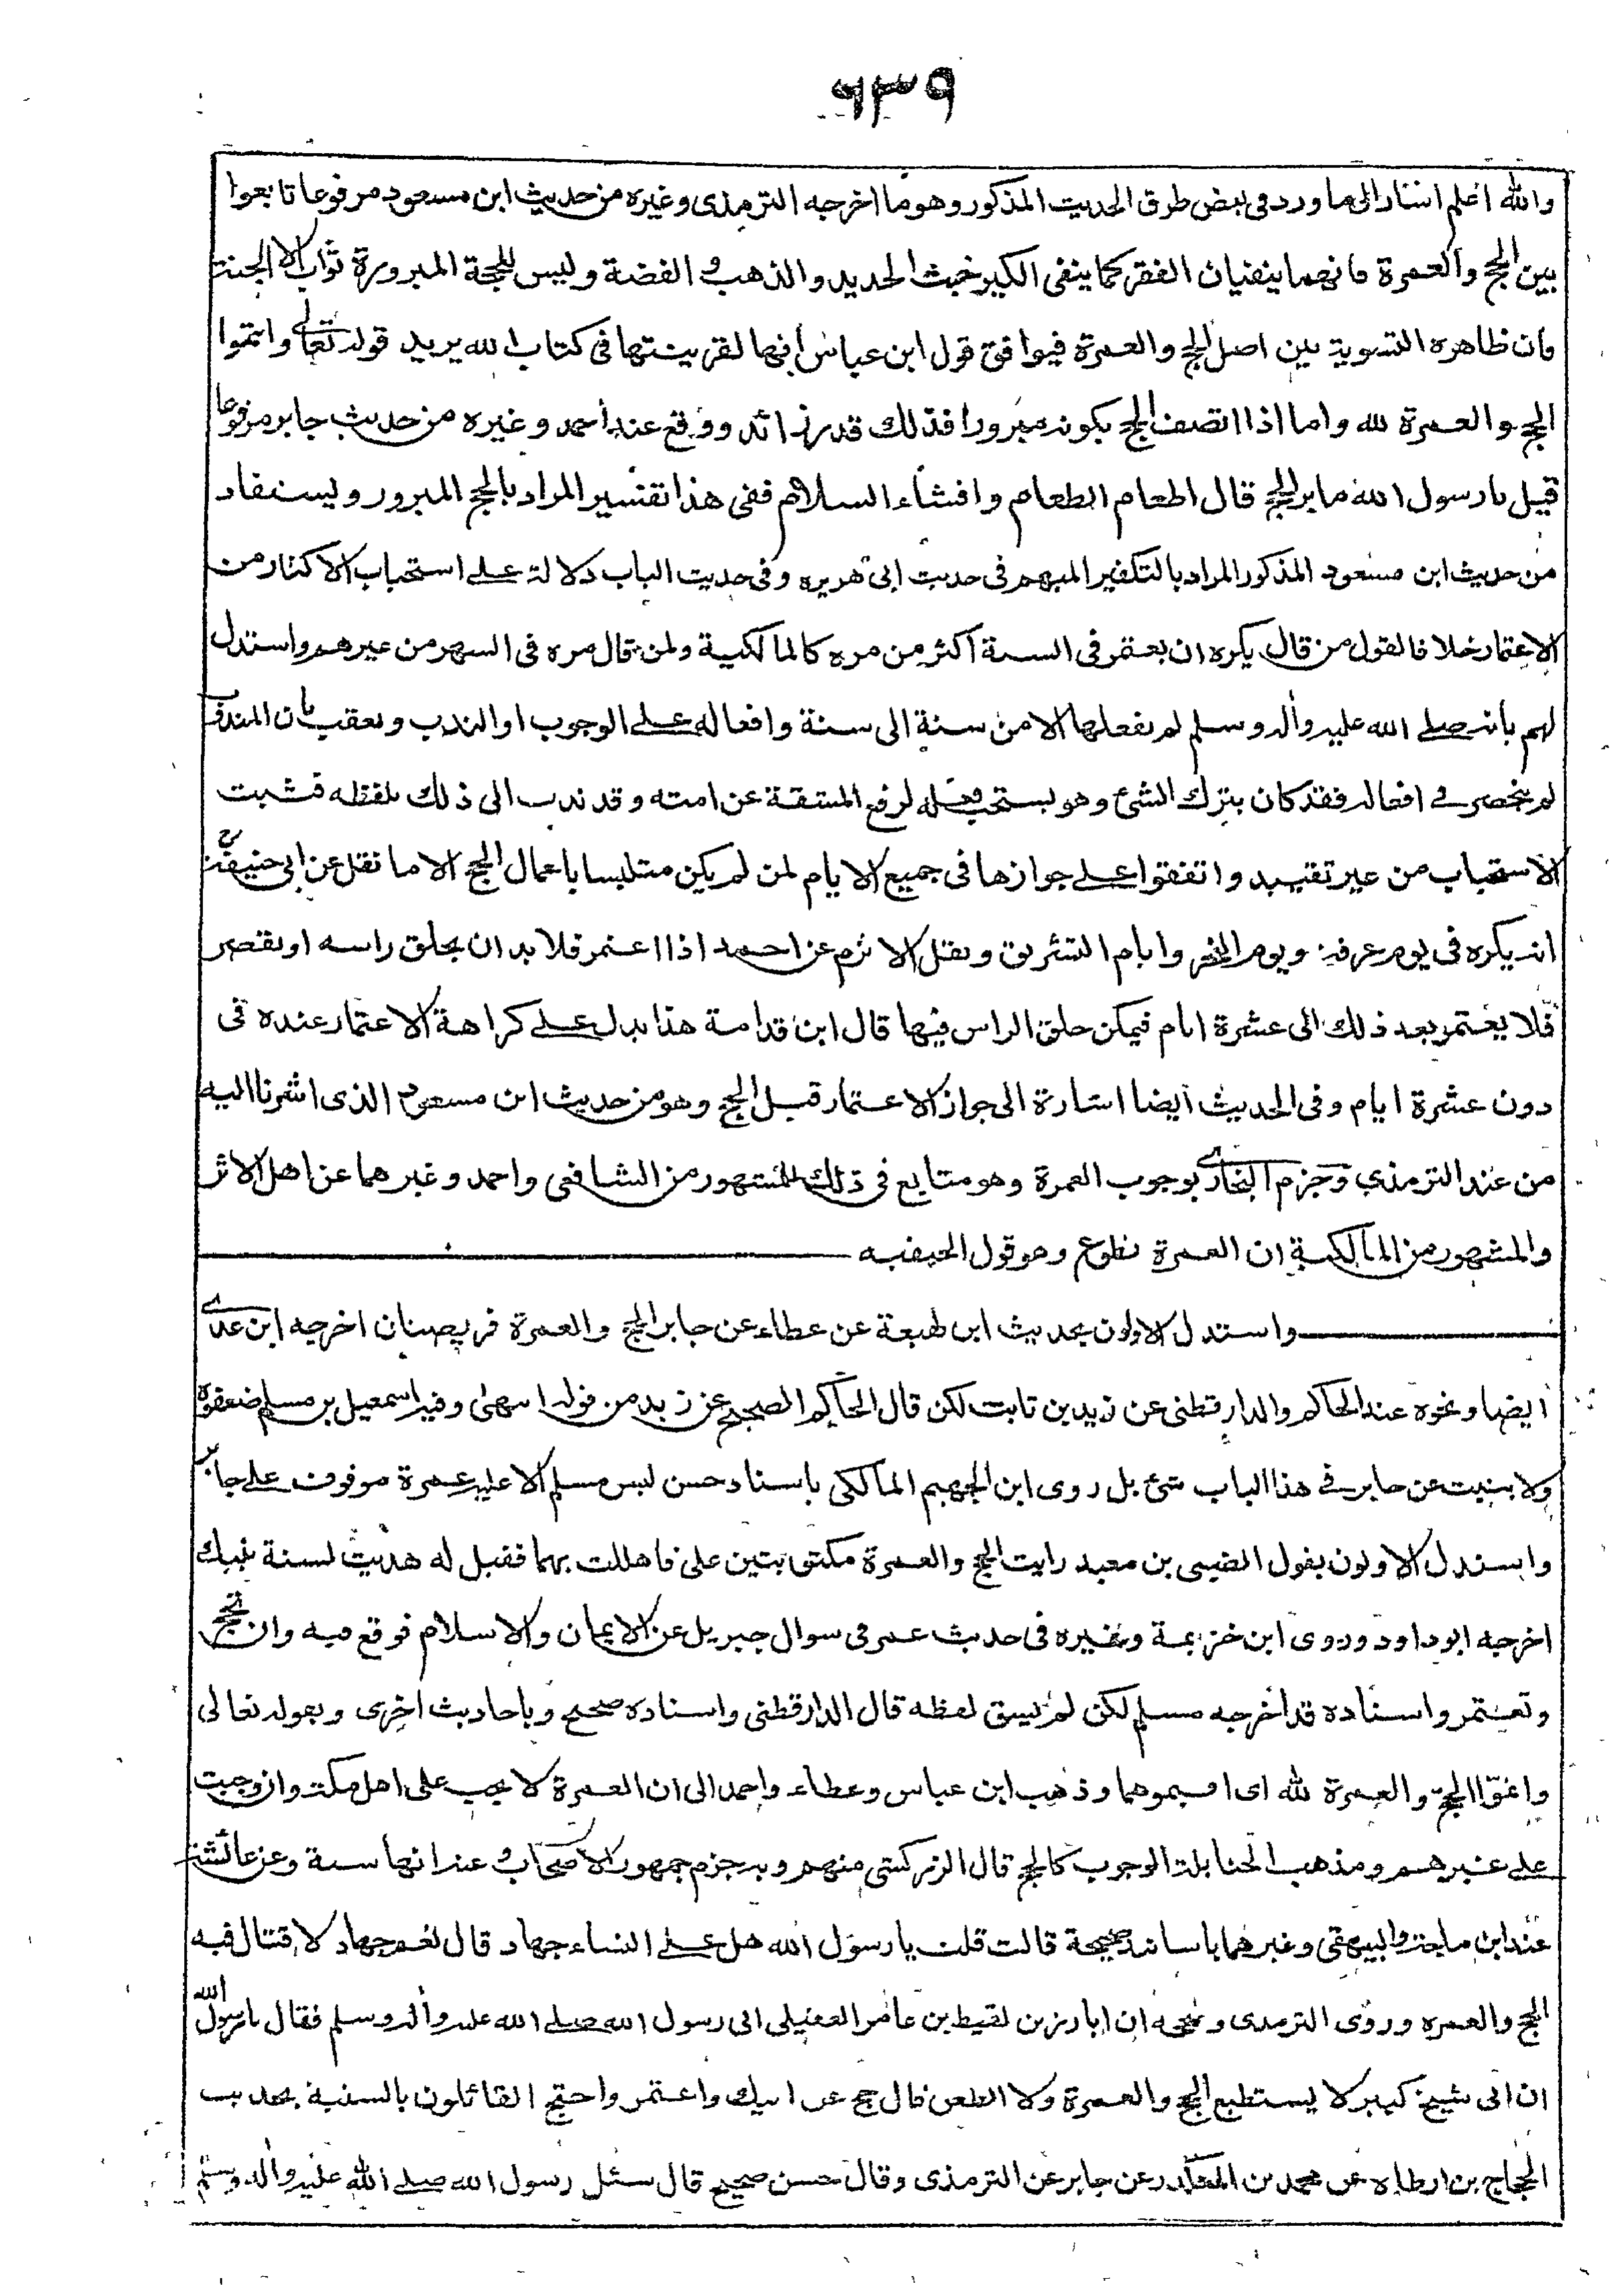 ٦٣٩
والله اعلم اشار الى ما ورد فى بعض طرق الحديث المذكور وهو ما اخرجه الترمذى وغيره من حديث ابن مسعود مرفوعا تابعوا
بين الحج والعمرة فانهما ينفيان الفقر كما ينفى الكير خبث الحديد والذهب والفضة وليس للحجة المبرورة ثواب الا الجنة
فان ظاهره التسوية بين اصل الحج والعمرة فيوافق قول ابن عباس انها لقرينتها فى كتاب الله يريد قوله تعالى واتموا
الحج والعمرة لله واما اذا اتصف الحج بكونه مبرورا فذلك قدر زائد ووقع عند احمد وغيره من حديث جابر مرفوعا
قيل يا رسول الله ما بر الحج قال اطعام الطعام وافشاء السلام ففى هذا تفسير المراد بالحج المبرور ويستفاد
من حديث ابن مسعود المذكور المراد بالتكفير المبهم فى حديث ابى هريره وفى حديث الباب دلالة على استحباب الاكثار من
الاعتمار خلافا لقول من قال يكره ان يعتمر فى السنة اكثر من مره كالمالكية ولمن قال مره فى الشهر من غيرهم واستدل
لهم بانه صلى الله عليه وآله وسلم لم يفعلها الا من سنة الى سنة وافعاله على الوجوب او الندب وتعقب بان المندوب
لم ينحصر فى افعاله فقد كان يترك الشئ وهو يستحب فعله لرفع المشقة عن امته وقد ندب الى ذلك بلفظه فثبت
الاستحباب من غير تقييد واتفقوا على جوازها فى جميع الايام لمن لم يكن متلبسا باعمال الحج الا ما نقل عن ابى حنيفة رح
انه يكره فى يوم عرفة ويوم النحر وايام التشريق ونقل الاثرم عن احمد اذا اعتمر فلا بد ان يحلق راسه او يقصر
فلا يعتمر بعد ذلك الى عشرة ايام فيمكن حلق الراس فيها قال ابن قدامة هذا يدل على كراهة الاعتمار عنده فى
دون عشرة ايام وفى الحديث ايضا اشارة الى جواز الاعتمار قبل الحج وهو من حديث ابن مسعود الذى اشرنا اليه
من عند الترمذي وجزم البخارى بوجوب العمرة وهو متابع فى ذلك للمشهور من الشافعى واحمد وغيرهما عن اهل الاثر
والمشهور من المالكية ان العمرة تطوع وهو قول الحنفيه
واستدل الاولون بحديث ابن لهيعة عن عطاء عن جابر الحج والعمرة فريضتان اخرجه ابن عدى
ايضا ونحوه عند الحاكم والدارقطنى عن زيد بن ثابت لكن قال الحاكم الصحيح عن زيد من قوله انتهى وفيه اسمعيل بن مسلم ضعفوه
ولا يثبت عن جابر فى هذا الباب شئ بل روى ابن الجهم المالكى باسناد حسن ليس مسلم الا عليه عمرة موقوف على جابر
واستدل الاولون بقول الضبى بن معبد رايت الحج والعمرة مكتوبتين على فاهللت بهما فقيل له هديت لسنة نبيك
اخرجه ابوداود وروى ابن خزيمة وغيره فى حديث عمر فى سوال جبريل عن الايمان والاسلام فوقع فيه وان تحج
وتعتمر واسناده قد اخرجه مسلم لكن لم يسق لفظه قال الدارقطنى واسناده صحيح وباحاديث اخرى وبقوله تعالى
واتموا الحج والعمرة لله اى اقيموهما وذهب ابن عباس وعطاء واحمد الى ان العمرة لا تجب على اهل مكة وان وجبت
على غيرهم ومذهب الحنابلة الوجوب كالحج قال الزركشى منهم وبه جزم جمهور الاصحاب وعنه انها سنة وعن عائشة
عند ابن ماجة والبيهقى وغيرهما باسانيد صحيحة قالت قلت يا رسول الله هل على النساء جهاد قال نعم جهاد لا قتال فيه
الحج والعمره وروى الترمذى وصححه ان ابا رزين لقيط بن عامر العقيلى اتى رسول الله صلى الله عليه وآله وسلم فقال يا رسول الله
ان ابى شيخ كبير لا يستطيع الحج والعمرة ولا الظعن قال حج عن ابيك واعتمر واحتج القائلون بالسنية بحديث
الحجاج بن ارطاه عن محمد بن المنكدر عن جابر عن الترمذى وقال حسن صحيح قال سئل رسول الله صلى الله عليه وآله وسلم